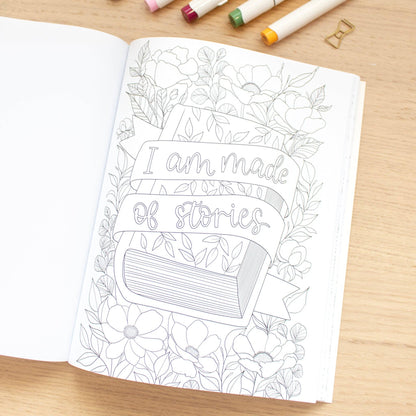 I am made
of stories